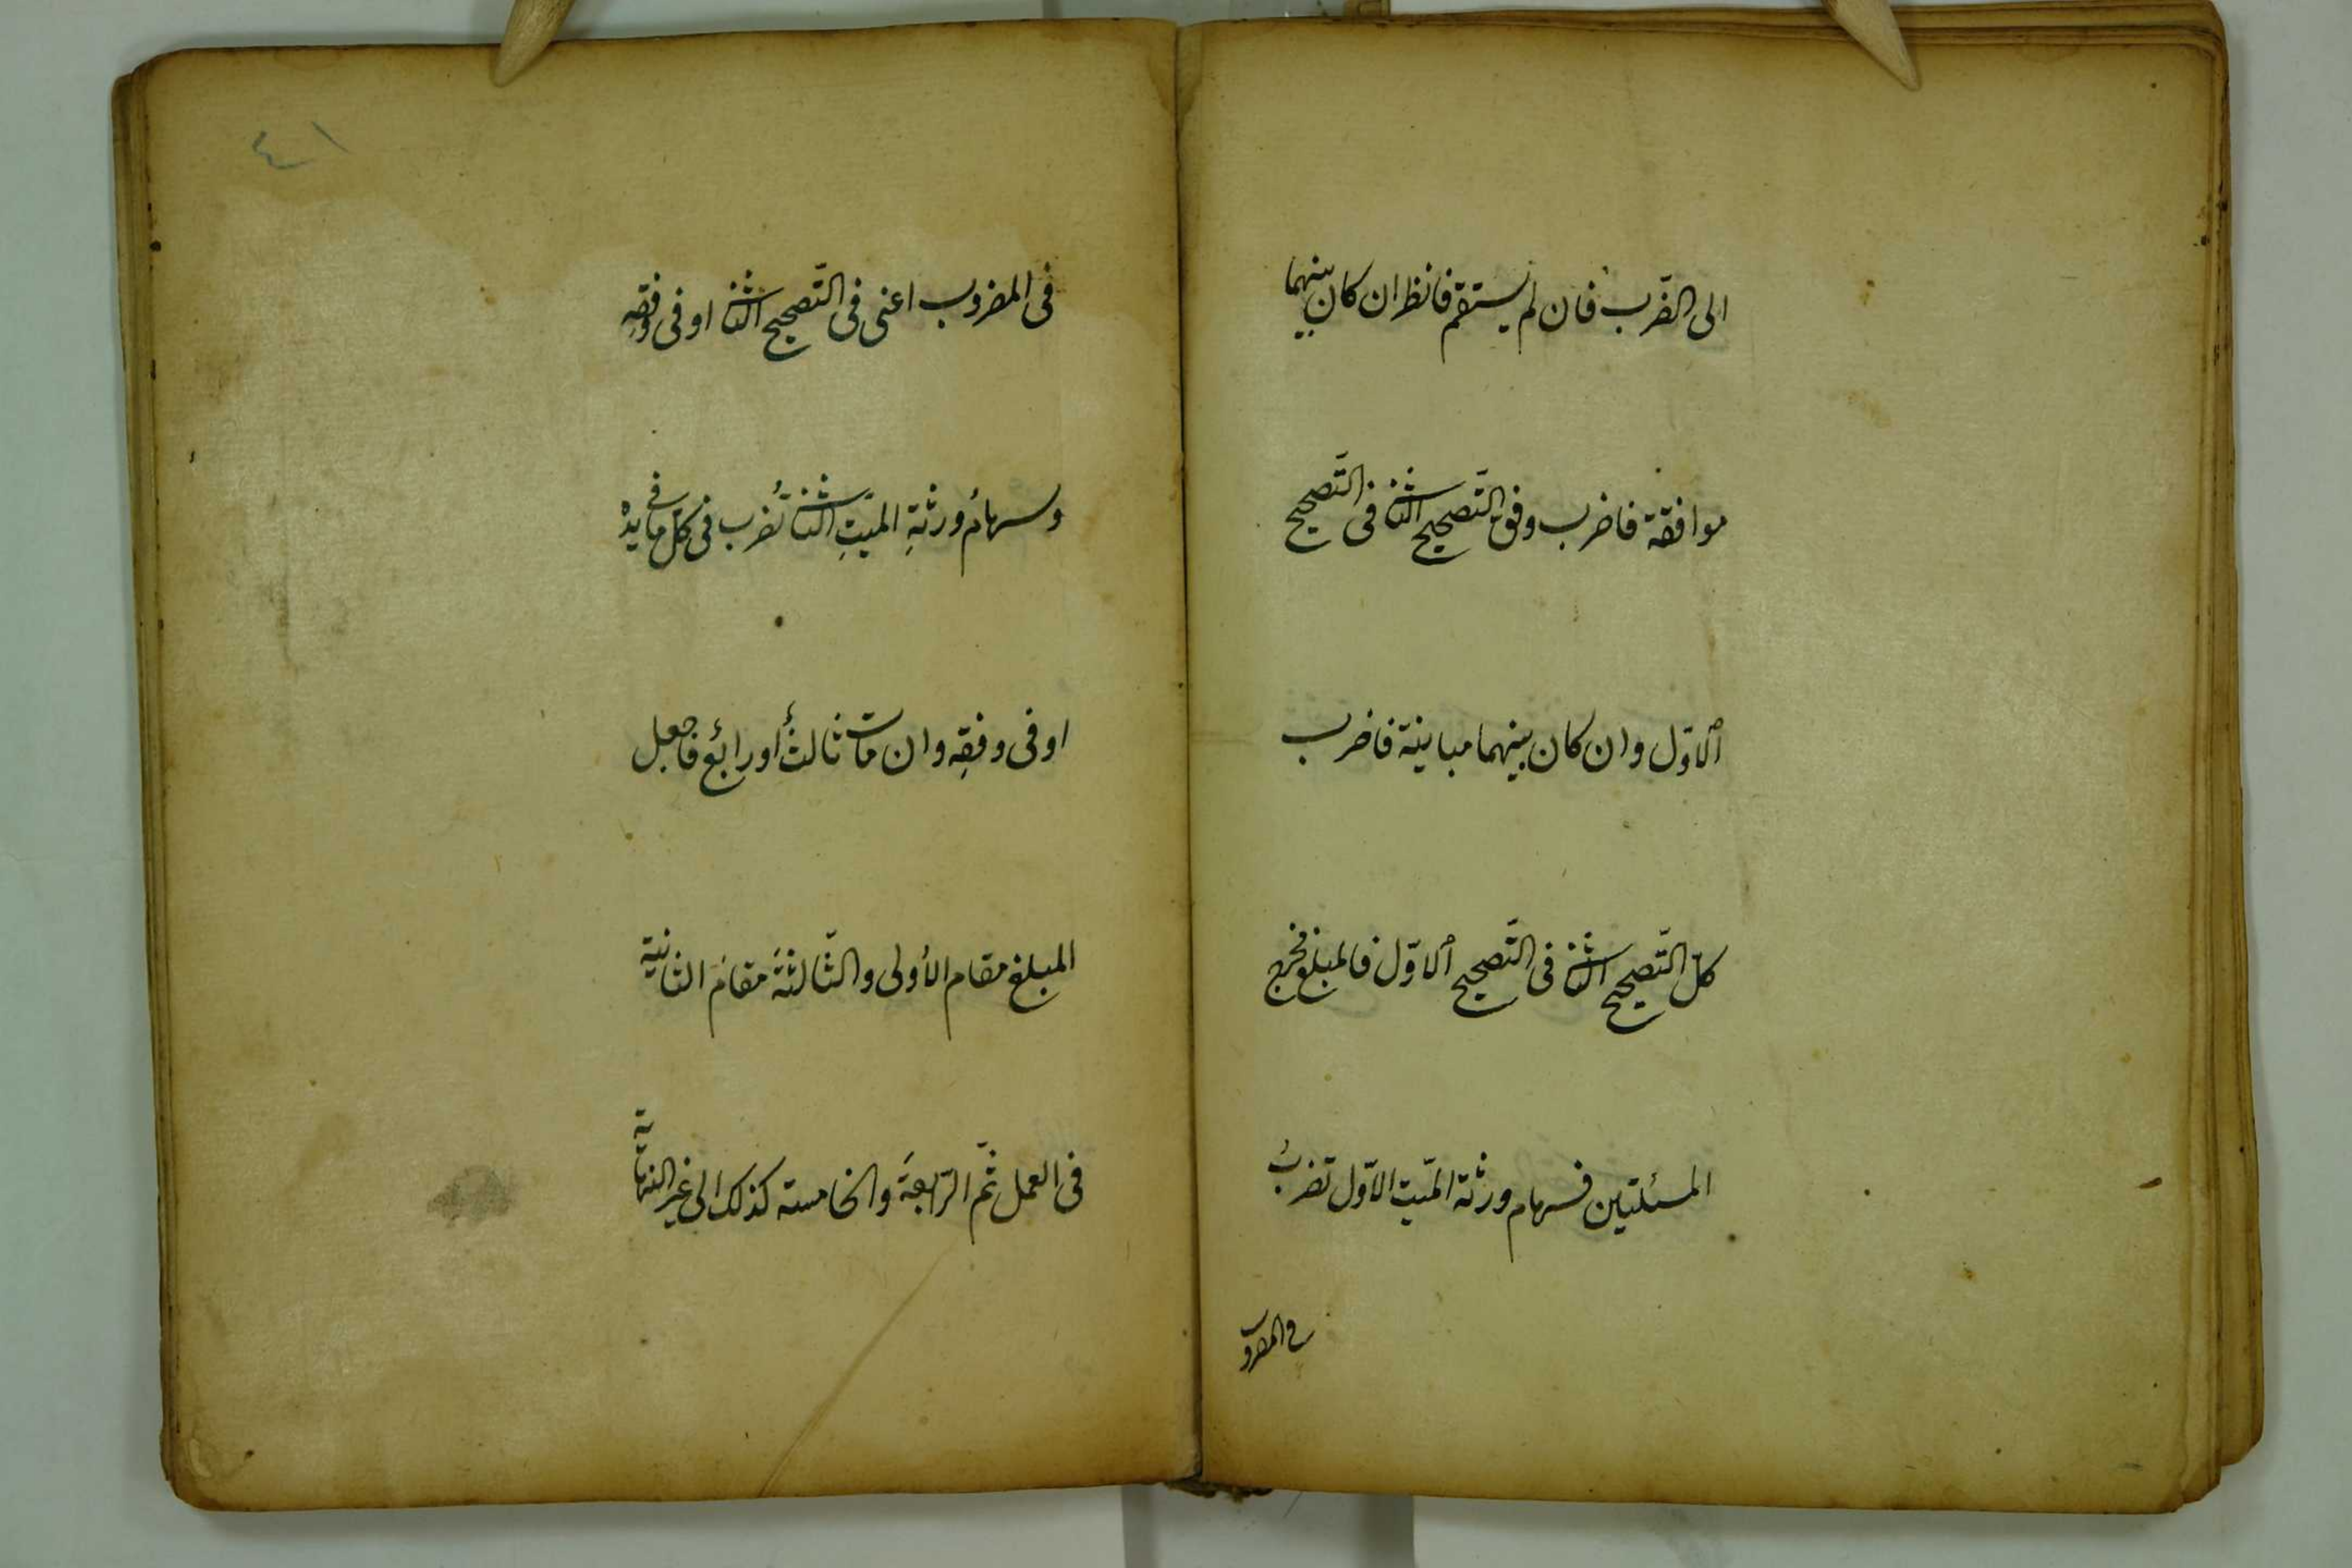 الى الضّرب فان لم يستقم فانظر ان كان بينهما
موافقة فاضرب وفق التّصحيح الثانى فى التّصحيح
الاوّل وان كان بينهما مباينة فاضرب
كلّ التّصحيح الثانى فى التّصحيح الاوّل فالمبلغ مخرج
المسئلتين فسهام ورثة الميّت الاوّل تضربُ
فى المضروب
٤١
فى المضروب اعنى فى التّصحيح الثانى او فى وفقهِ
وسهامُ ورثةِ الميّتِ الثانى تُضرب فى كلّ ما فى يده
او فى وفقِه وان مات ثالثٌ أو رابعٌ فاجعل
المبلغ مقام الأولى والثّالثةَ مقامَ الثانية
فى العمل ثمّ الرّابعةَ والخامسته كذلك الى غير النهاية